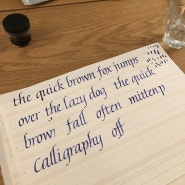 the quick brown fox jumps
over the lazy dog the quick
brown fall often mittenp
Calligraphy off